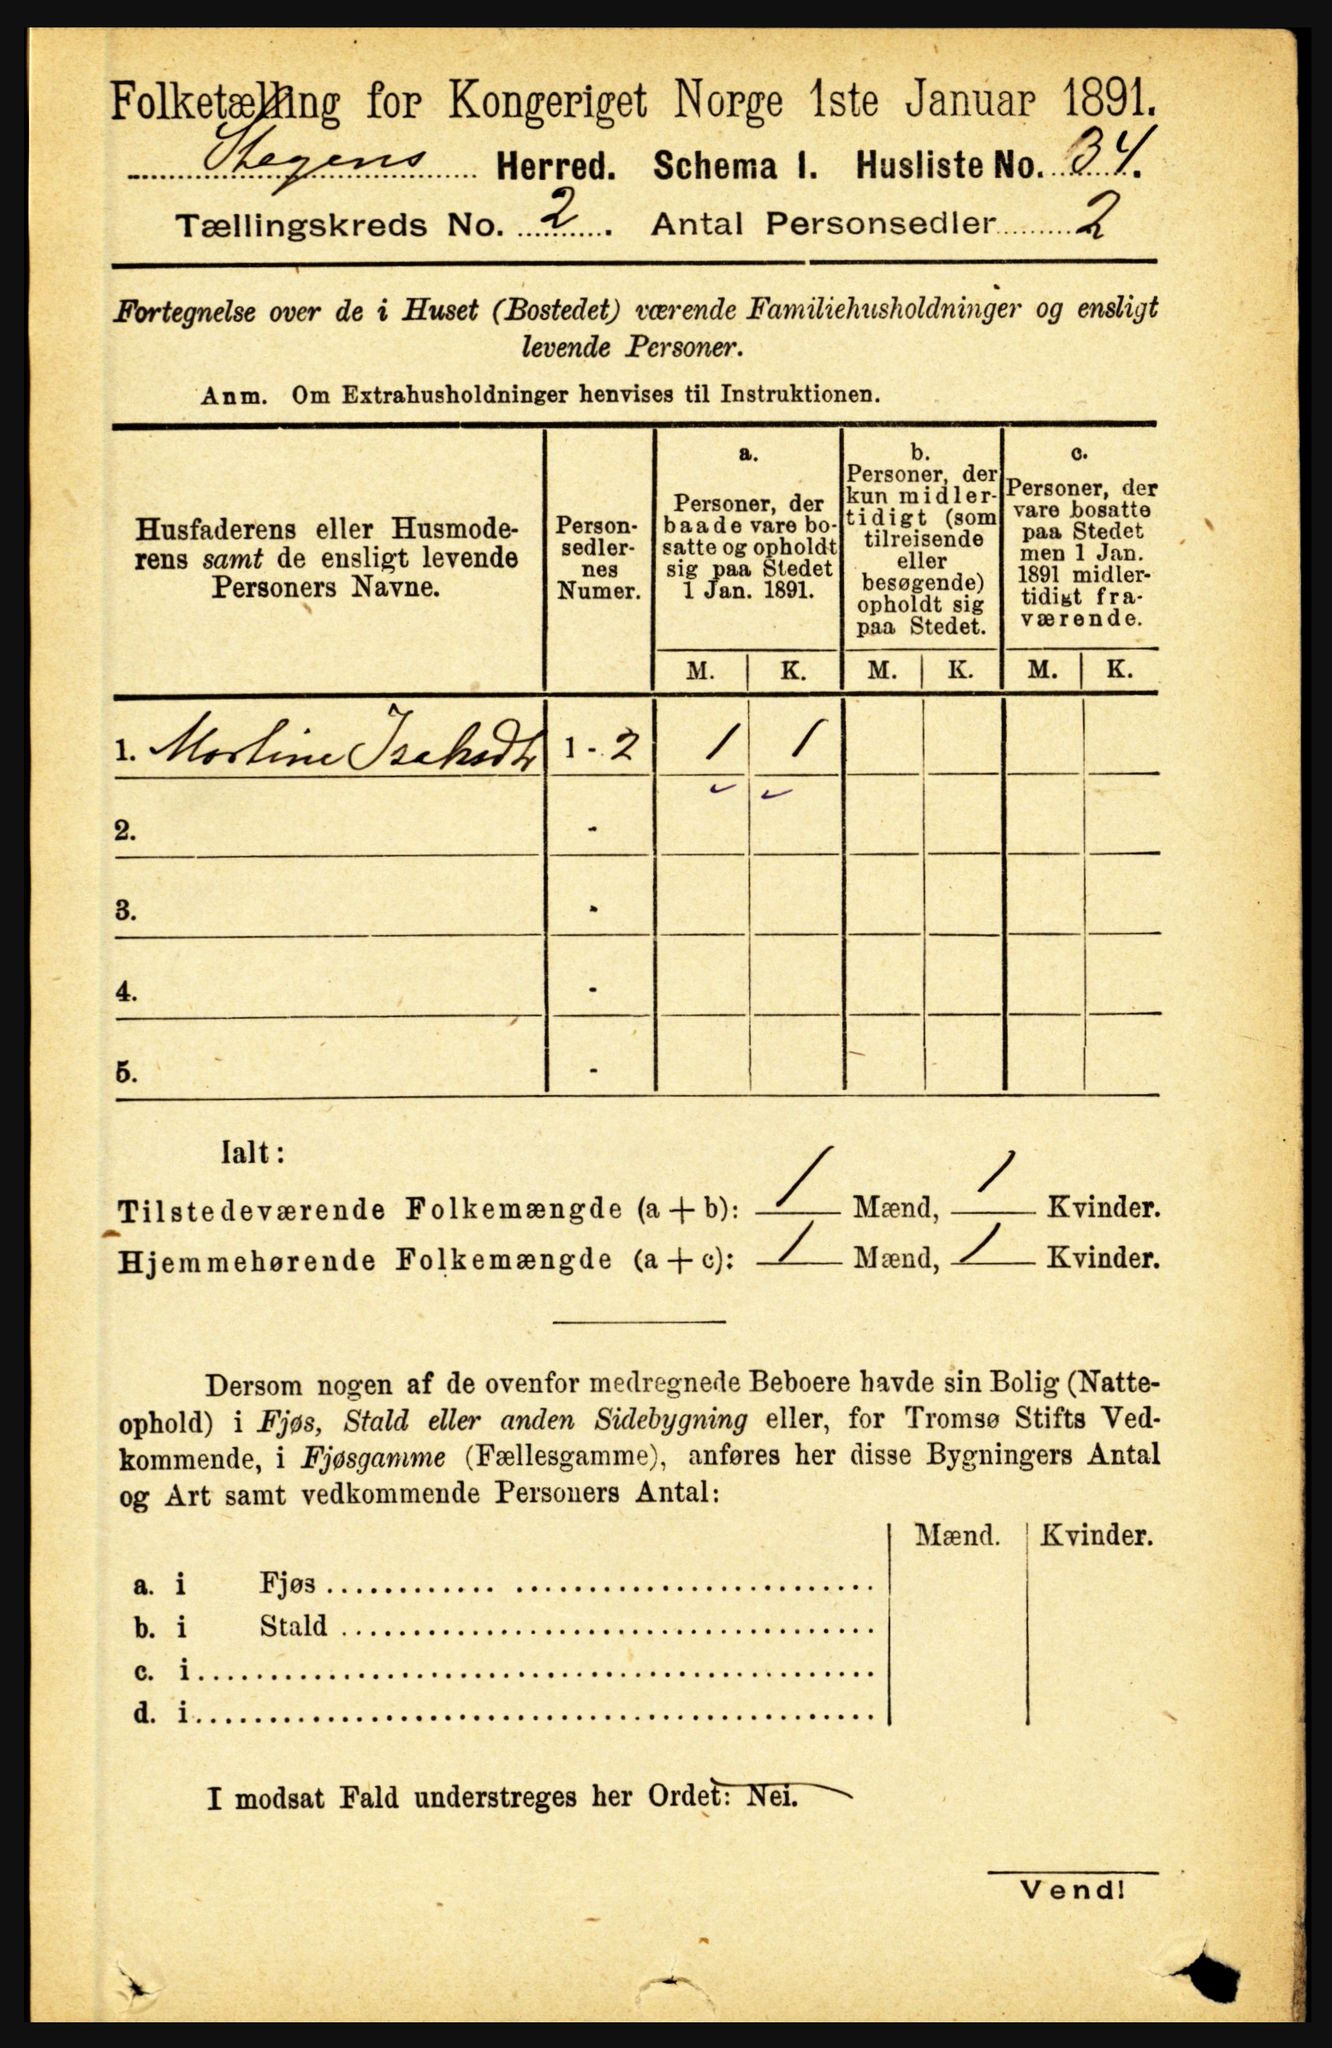 Folketælling for Kongeriget Norge 1ste Januar 1891.
Stegens Herred. Schema I. Husliste No. 34.
Tællingskreds No. 2. Antal Personsedler 2
Fortegnelse over de i Huset (Bostedet) værende Familiehusholdninger og ensligt
levende Personer.
Anm. Om Extrahusholdninger henvises til Instruktionen.
Husfaderens eller Husmode-
rens samt de ensligt levende
Personers Navne.
Person-
sedler-
nes
Numer.
a.
Personer, der
baade vare bo-
satte og opholdt
sig paa Stedet
1 Jan. 1891.
b.
Personer, der
kun midler-
tidigt (som
tilreisende
eller
besøgende)
opholdt sig
paa Stedet.
c.
Personer, der
vare bosatte
paa Stedet
men 1 Jan.
1891 midler-
tidigt fra-
værende.
M. K. M. K. M. K.
1. Martine Isaksdtr 1 - 2 1 1
2. -
3. -
4. -
5. -
Ialt:
Tilstedeværende Folkemængde (a + b): 1 Mænd, 1 Kvinder.
Hjemmehørende Folkemængde (a + c): 1 Mænd, 1 Kvinder.
Dersom nogen af de ovenfor medregnede Beboere havde sin Bolig (Natte-
ophold) i Fjøs, Stald eller anden Sidebygning eller, for Tromsø Stifts Ved-
kommende, i Fjøsgamme (Fællesgamme), anføres her disse Bygningers Antal
og Art samt vedkommende Personers Antal:
Mænd. Kvinder.
a. i Fjøs
b. i Stald
c. i
d. i
I modsat Fald understreges her Ordet: Nei.
Vend!